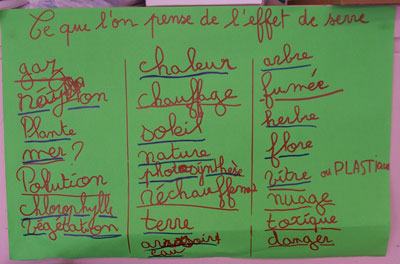 Ce que l'on pense de l'effet de serre
gaz
Plante
mer ?
Polution
chlorophylle
Végétation
chaleur
chauffage
soleil
nature
photosynthèse
réchauffement
terre
eau
arbre
fumée
herbe
flore
vitre ou PLASTIQUE
nuage
toxique
danger